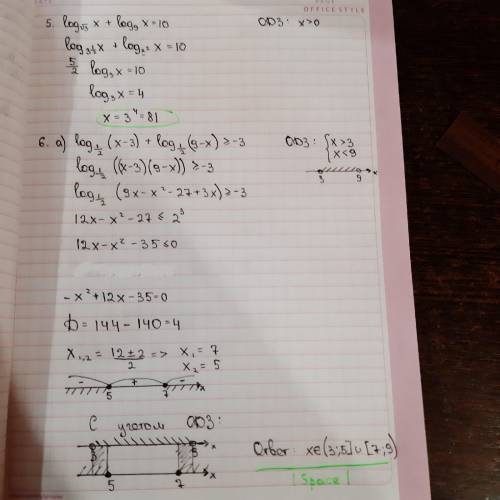 OFFICE STYLE
5. log_√3 x + log_9 x = 10   ОДЗ: x>0
log_3^½ x + log_3² x = 10
5/2 log_3 x = 10
log_3 x = 4
x = 3^4 = 81
6. a) log_½ (x-3) + log_½ (9-x) ≥ -3   ОДЗ: { x>3
x<9
log_½ ((x-3)(9-x)) ≥ -3
3 9 x
log_½ (9x - x² - 27 + 3x) ≥ -3
12x - x² - 27 ≤ 2³
12x - x² - 35 ≤ 0
-x² + 12x - 35 = 0
D = 144 - 140 = 4
x_1,2 = (12 ± 2)/2 => x_1 = 7
x_2 = 5
- + - x
5 7
С учетом ОДЗ:
3 9 x
x
5 7
Ответ: x∈(3;5]∪[7;9)
| Space |